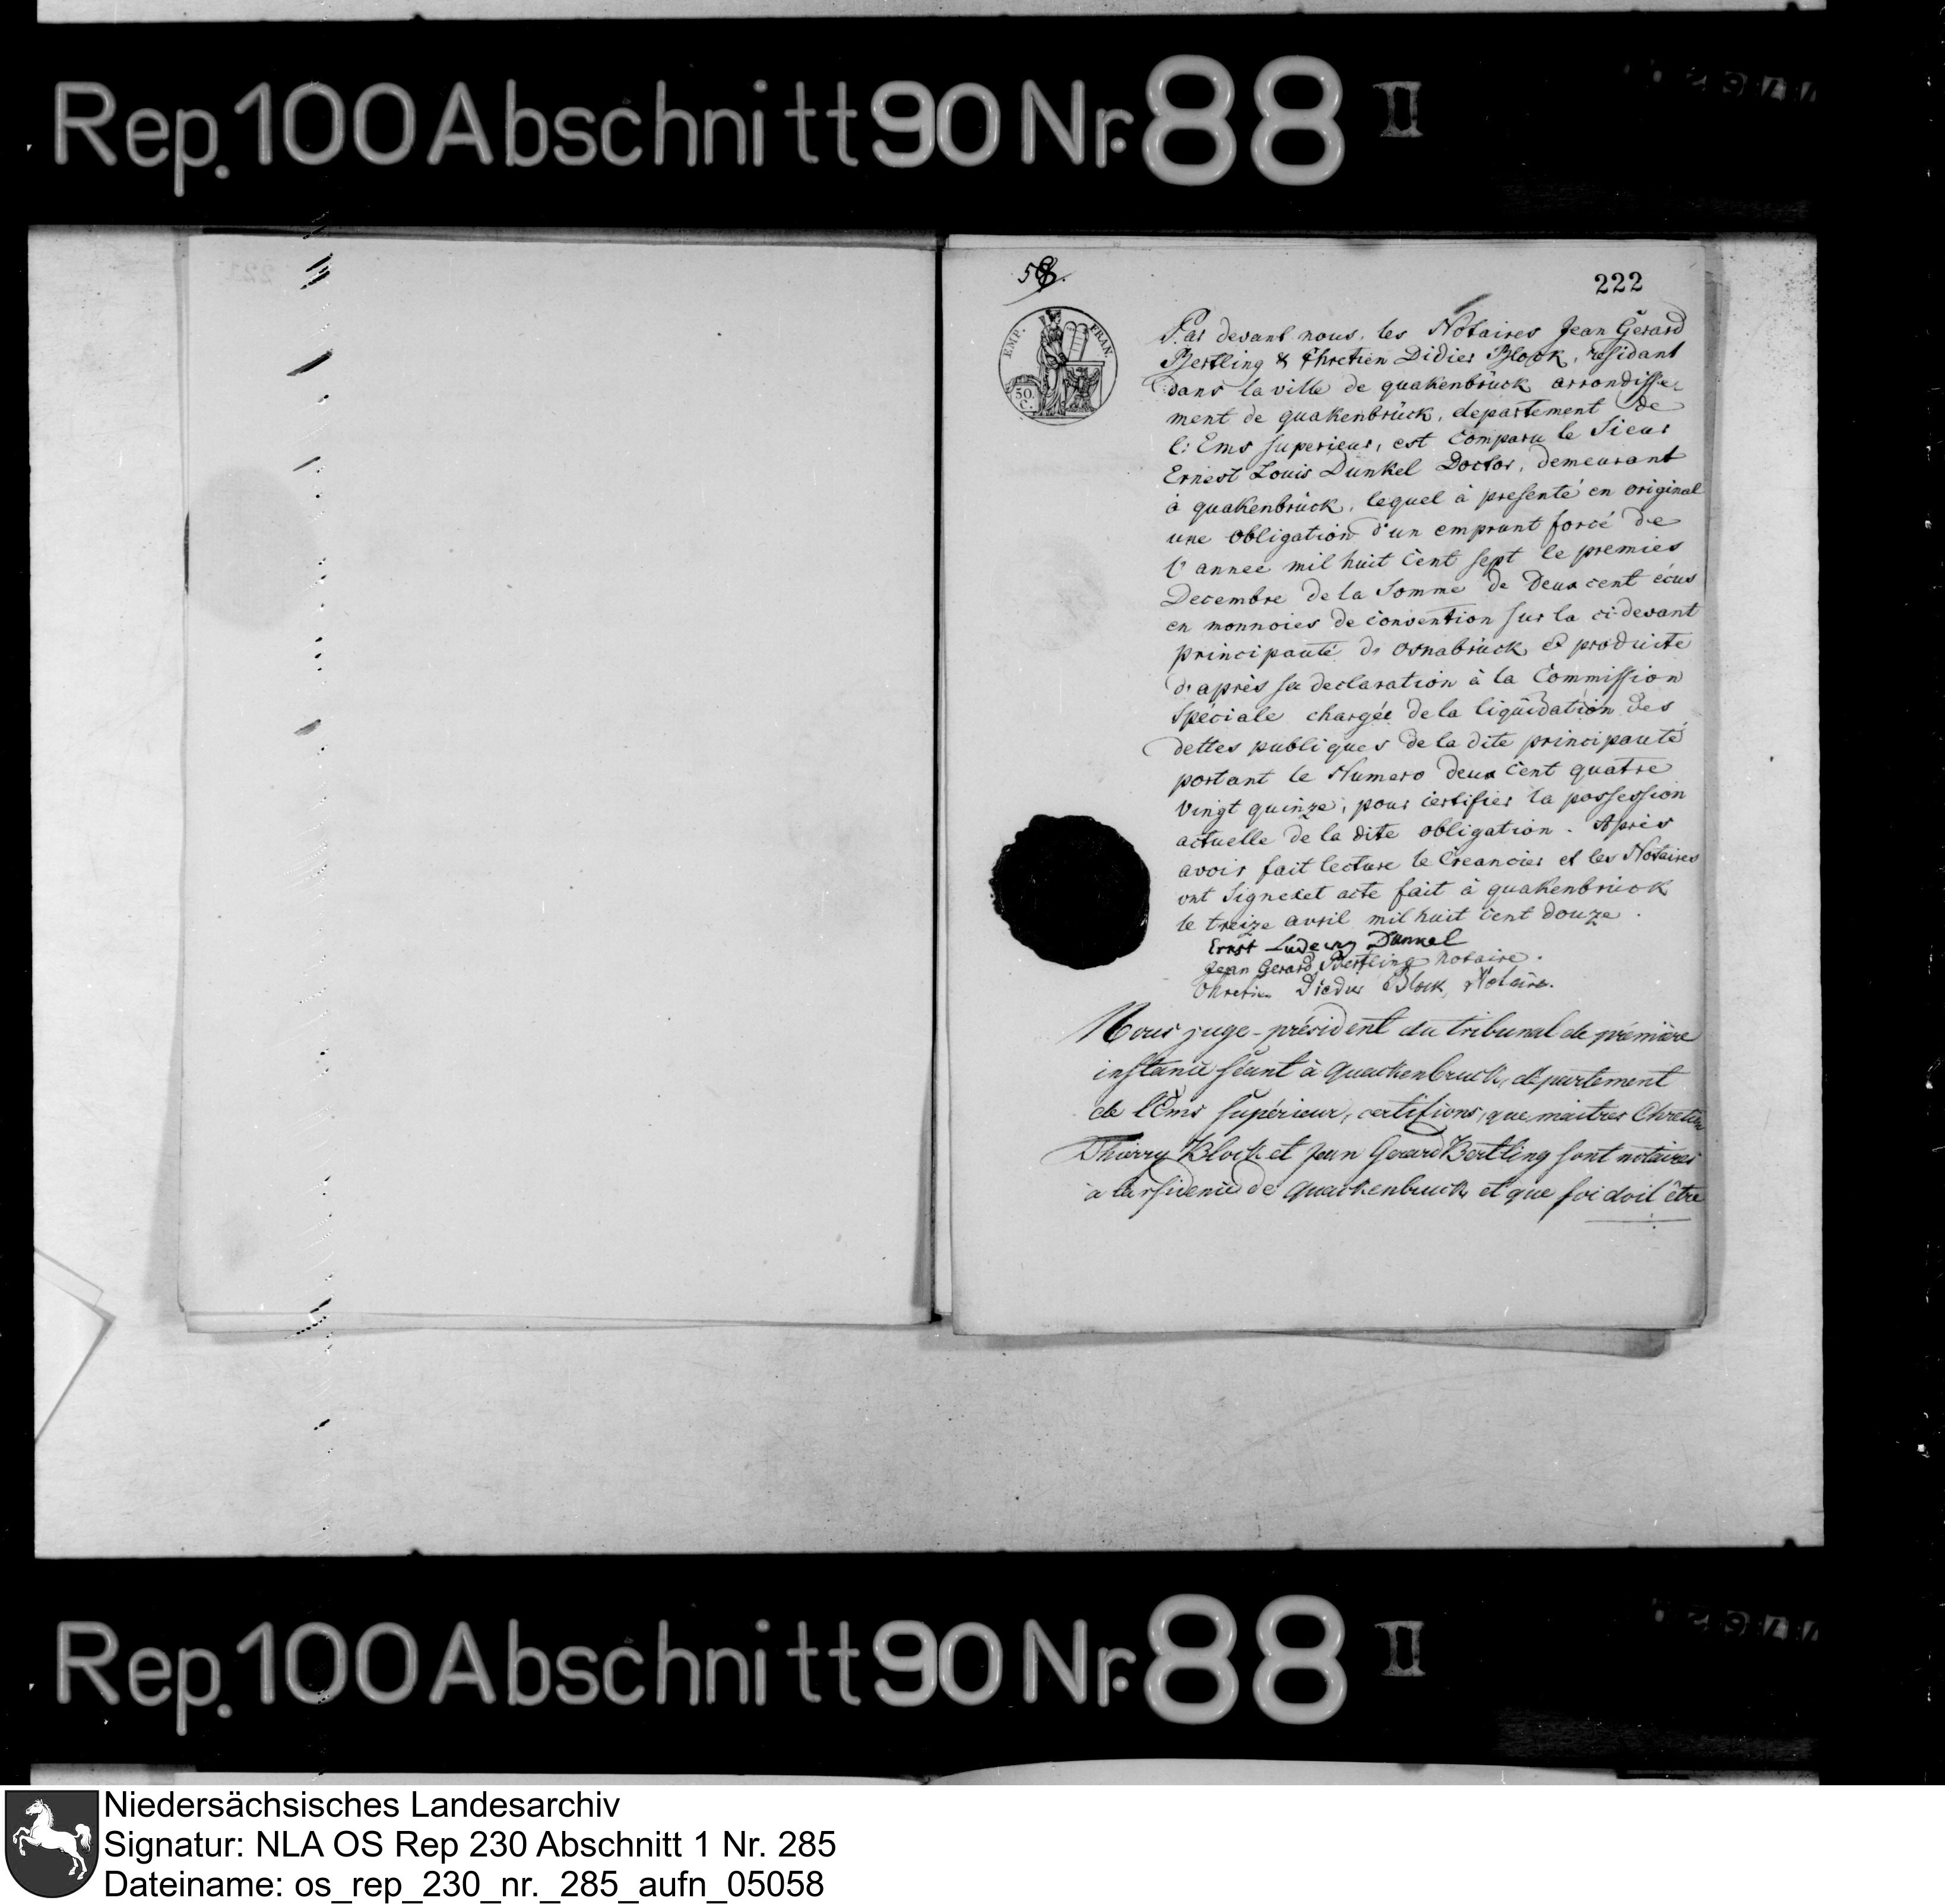 Rep.100 Abschnitt 90 Nr. 88 II
222
EMP. FRAN.
50
C.
Par devant nous, les Notaires Jean Gerard
Bertling & Chretien Didier Block, residant
dans la ville de quakenbrück arrondisse-
ment de quakenbrück, departement de
l'Ems superieur, est comparu le Sieur
Ernest Louis Dunkel Doctor, demeurant
à quakenbrück, lequel à presenté en original
une obligation d'un emprunt forcé de
l'annee mil huit cent sept le premier
Decembre de la Somme de Deux cent écus
en monnoies de convention sur la ci-devant
principauté d'osnabrück & produite
d'après sa declaration à la Commission
Spéciale chargée de la liquidation des
dettes publiques de la dite principauté
portant le Numero deux cent quatre
vingt quinze, pour certifier la possession
actuelle de la dite obligation. Après
avoir fait lecture le Creancier et les Notaires
ont Signé cet acte fait à quakenbrück
le treize avril mil huit cent douze.
Ernst Ludewig Dunkel
Jean Gerard Bertling notaire.
Chretien Diedier Block, Notaire.
Nous juge-président du tribunal de prémière
instance séant à Quackenbruck, département
de l'Ems supérieur, certifions, que maitres Chretien
Thierry Block et Jean Gerard Bertling sont notaires
à la résidence de Quackenbruck et que foi doit être
Rep.100 Abschnitt 90 Nr. 88 II
Niedersächsisches Landesarchiv
Signatur: NLA OS Rep 230 Abschnitt 1 Nr. 285
Dateiname: os_rep_230_nr._285_aufn_05058